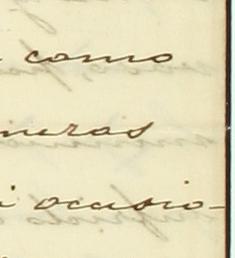 como
neras
i ocasio-